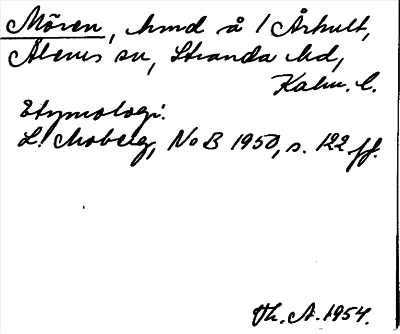 Mören, hmd å / Århult,
Ålems sn, Stranda hd,
Kalm. l.
Etymologi:
L. Moberg, NoB 1950, s. 122 ff.
Th. A. 1954.